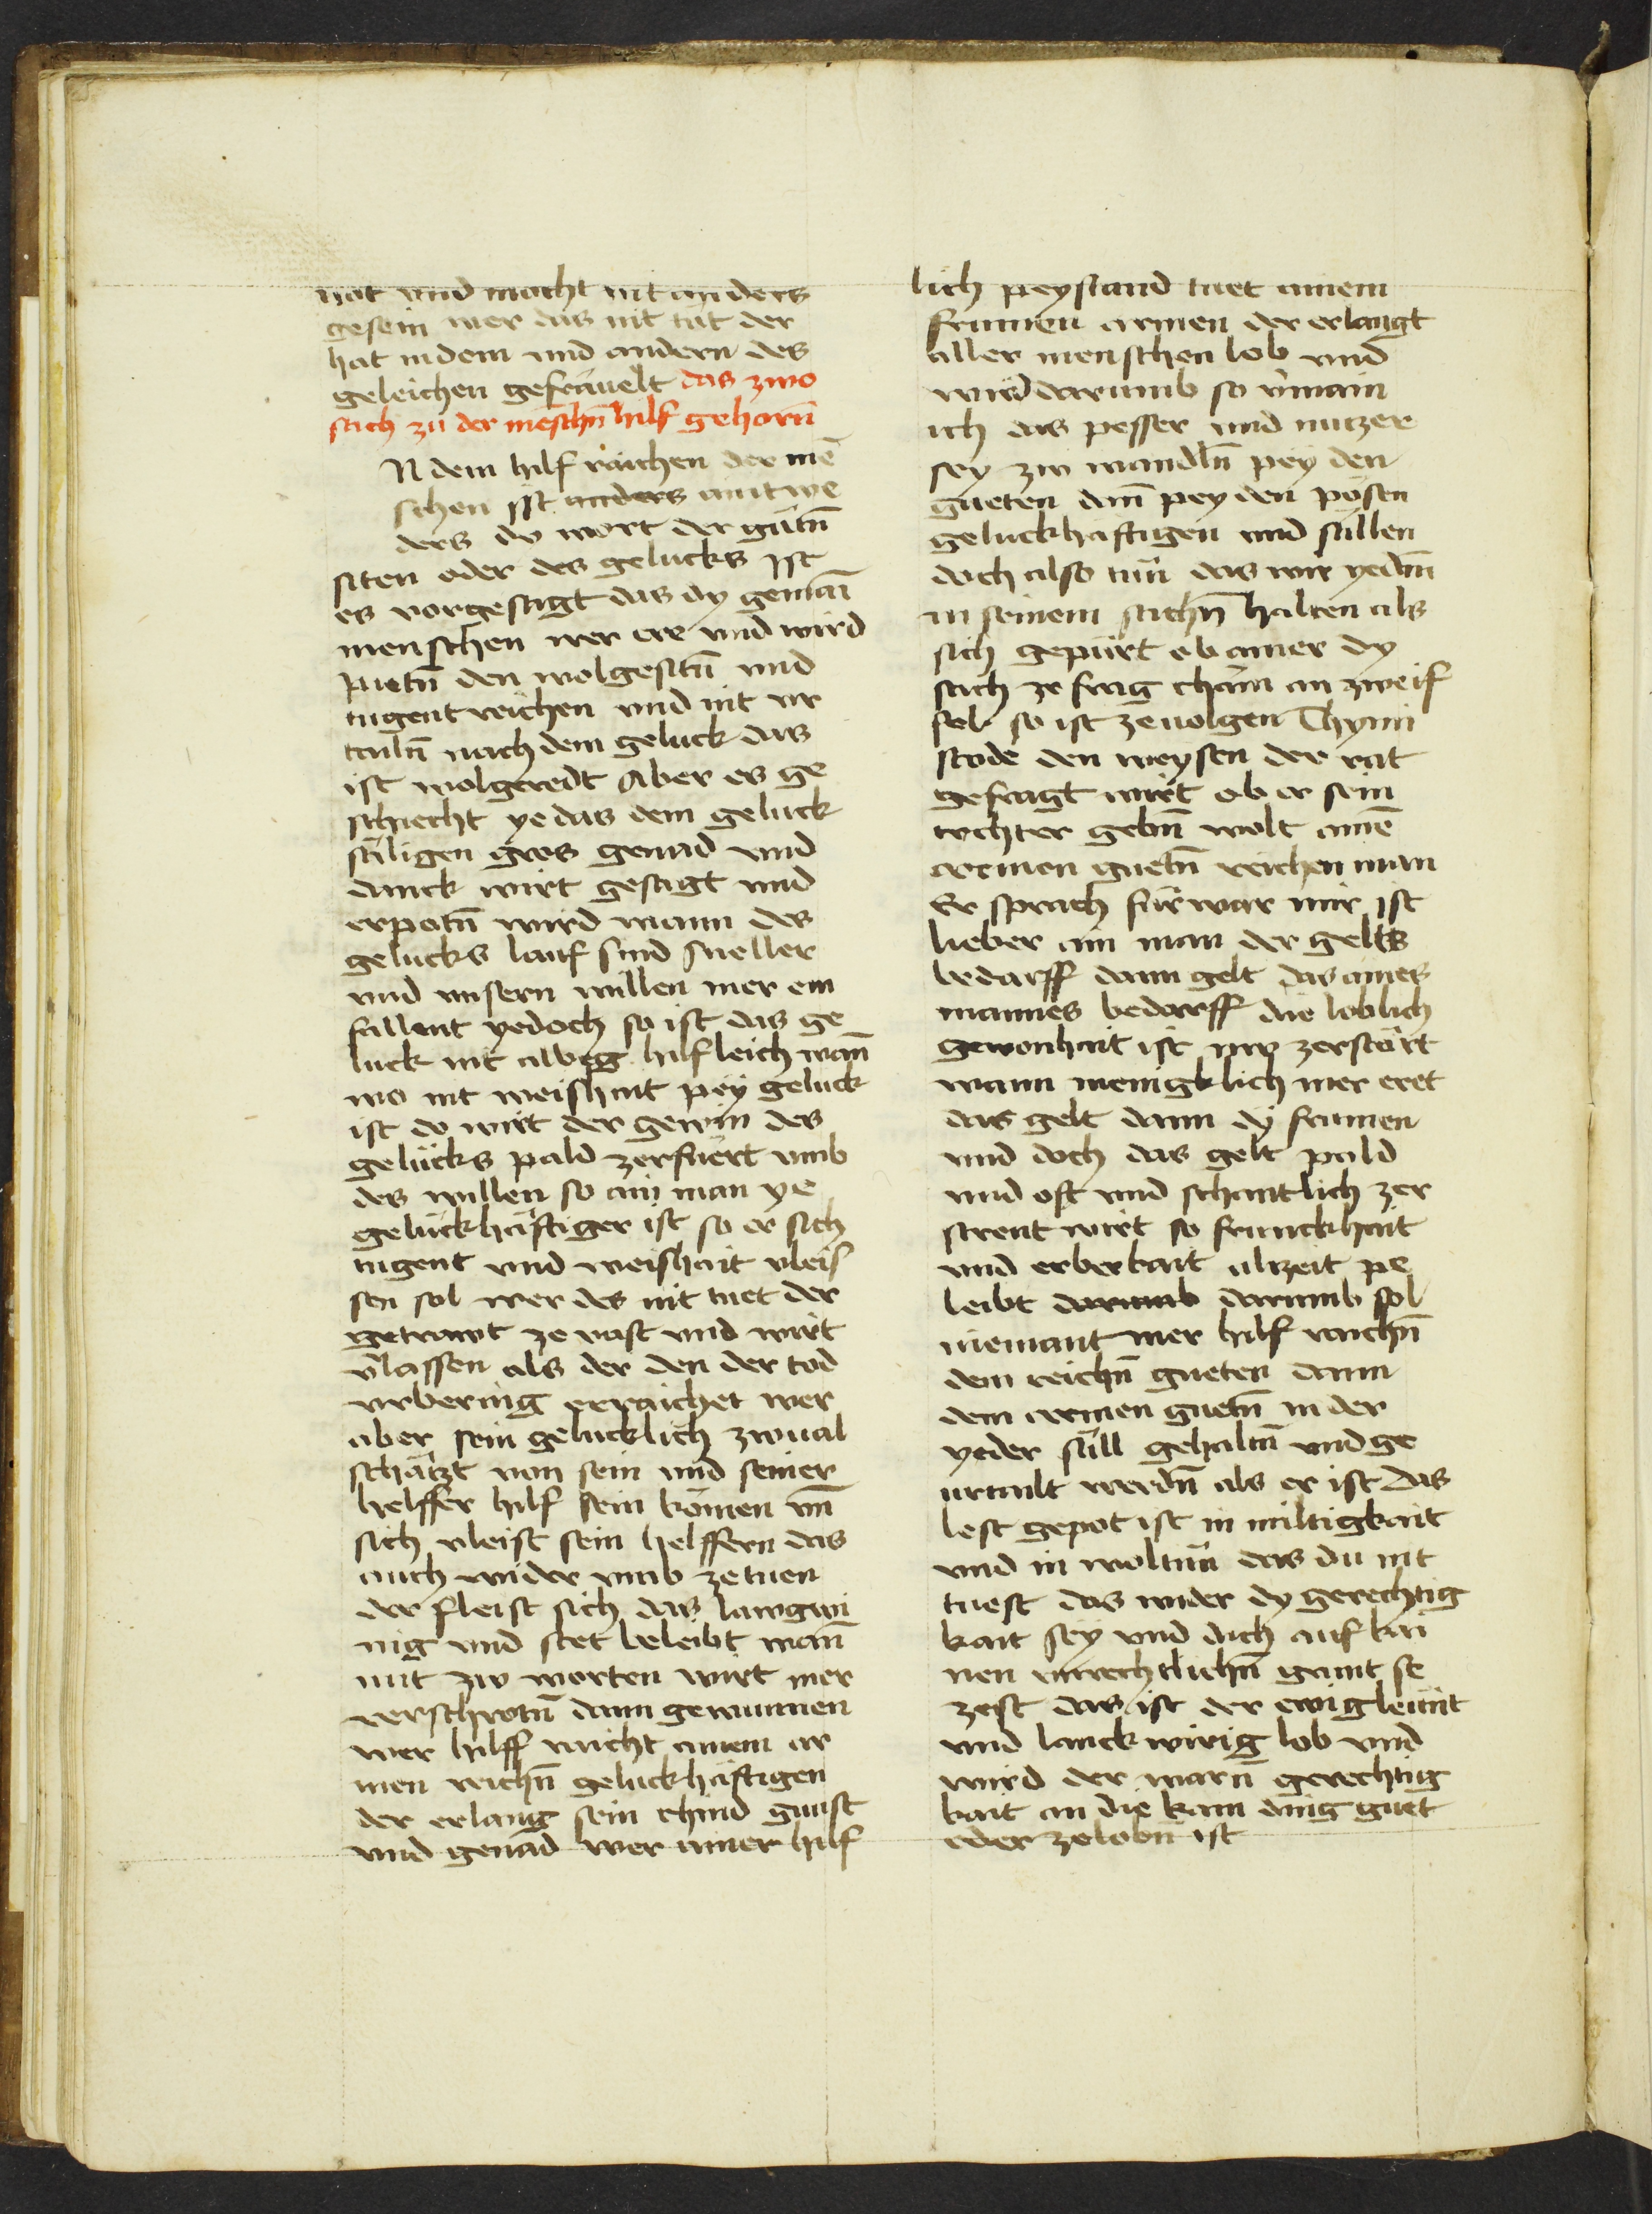 not vnd mocht nit anders
gesein wer das nit tüt der
hat in dem vnd andern des
geleichen gefräuelt das zwo
sach zu der mēschn̄ hilf gehorn̄
N dem hilf raichen der mē
schen ist anders aintwe
ders do wort der gütn̄
siten oder des gelucks Ist
es vorgesagt das dy gemai
menschen wer ere vnd wird
pietn̄ den wolgesitn̄ vnd
tugent reichen vnd nit vr
tailn̄ nach dem geluck das
ist wolgeredt Aber es ge
schiecht ye das dem geluck
säligen gros genad vnd
danck wirt gesagt vnd
erpotn̄ wird wann des
gelucks lauf sind sneller
vnd vnsern willen mer em
fallent yedoch so ist das ge
luck nit alweg hilfleich wan̄
wo nit weishait pey geluck
ist do wirt der gewin des
gelücks pald zerfuert vmb
des willen so ain man ye
gelückhäftiger ist so er sich
tugent vnd weishait vleis
sen sol wer des nit tuet der
getrawt ze vast vnd wirt
v̄lassen als der den der tod
vrbering erraichet wer
aber sein gelucklich zwual
schätzt von sein vnd seiner
helffer hilf sein kömen vn̄
sich vleist sein helffern das
auch wider vmb ze tuen
der fleist sich das langwi
rig vnd stet beleibt wan̄
mit zw worten wirt mer
verschrotn̄ dann gewunnen
wer hilff raicht ainem ar
men reichn̄ geluckhäftigen
der erlang sein chind gunst
vnd genad wer ainer hilf
lich peystand tuet ainem
frumen armen der erlangt
aller menschen lob vnd
wird darumb so v̄main
ich das pesser vnd nutzer
sey zw wandln̄ pey den
gueten dan̄ pey den pösen
geluckhäftigen vnd süllen
doch also tün das wir yedm̄
in seinem sachn̄ halten als
sich gepürt ob ainer dy
sach ze frag chäm an zweif
fel so ist ze uolgen Thymi
stode den weysen der rat
gefragt wirt ob er sein
tochter gebn̄ wolt aine
armen guetn̄ reichen man
Er sprach fürwar mir ist
lieber ain man der gelts
bedarff dann gelt das aines
mannes bedarff die loblich
gewonhait ist nw zerstört
wann menigklich mer eret
das gelt dann dy frumen
vnd doch das gelt pald
vnd oft vnd schantlich zer
streut wirt so frumckhait
vnd erberkait alzeit pe
leibt darumb darumb sol
niemant mer hilf raichn̄
dem reichn̄ gueten dann
dem armen guetn̄ in der
yeder süll gehaltn̄ vnd ge
urtailt werdn̄ als er ist Das
lest gepot ist in miltigkait
vnd in woltün das du nit
tuest das wider dy gerechtig
kait sey vnd dich auf kai
nen vnrechtlichn̄ grunt se
zest das ist der ewig leunt
vnd lanckwirig lob vnd
wird der warn̄ gerechtig
kait an die kain ding guet
oder zelobn̄ ist